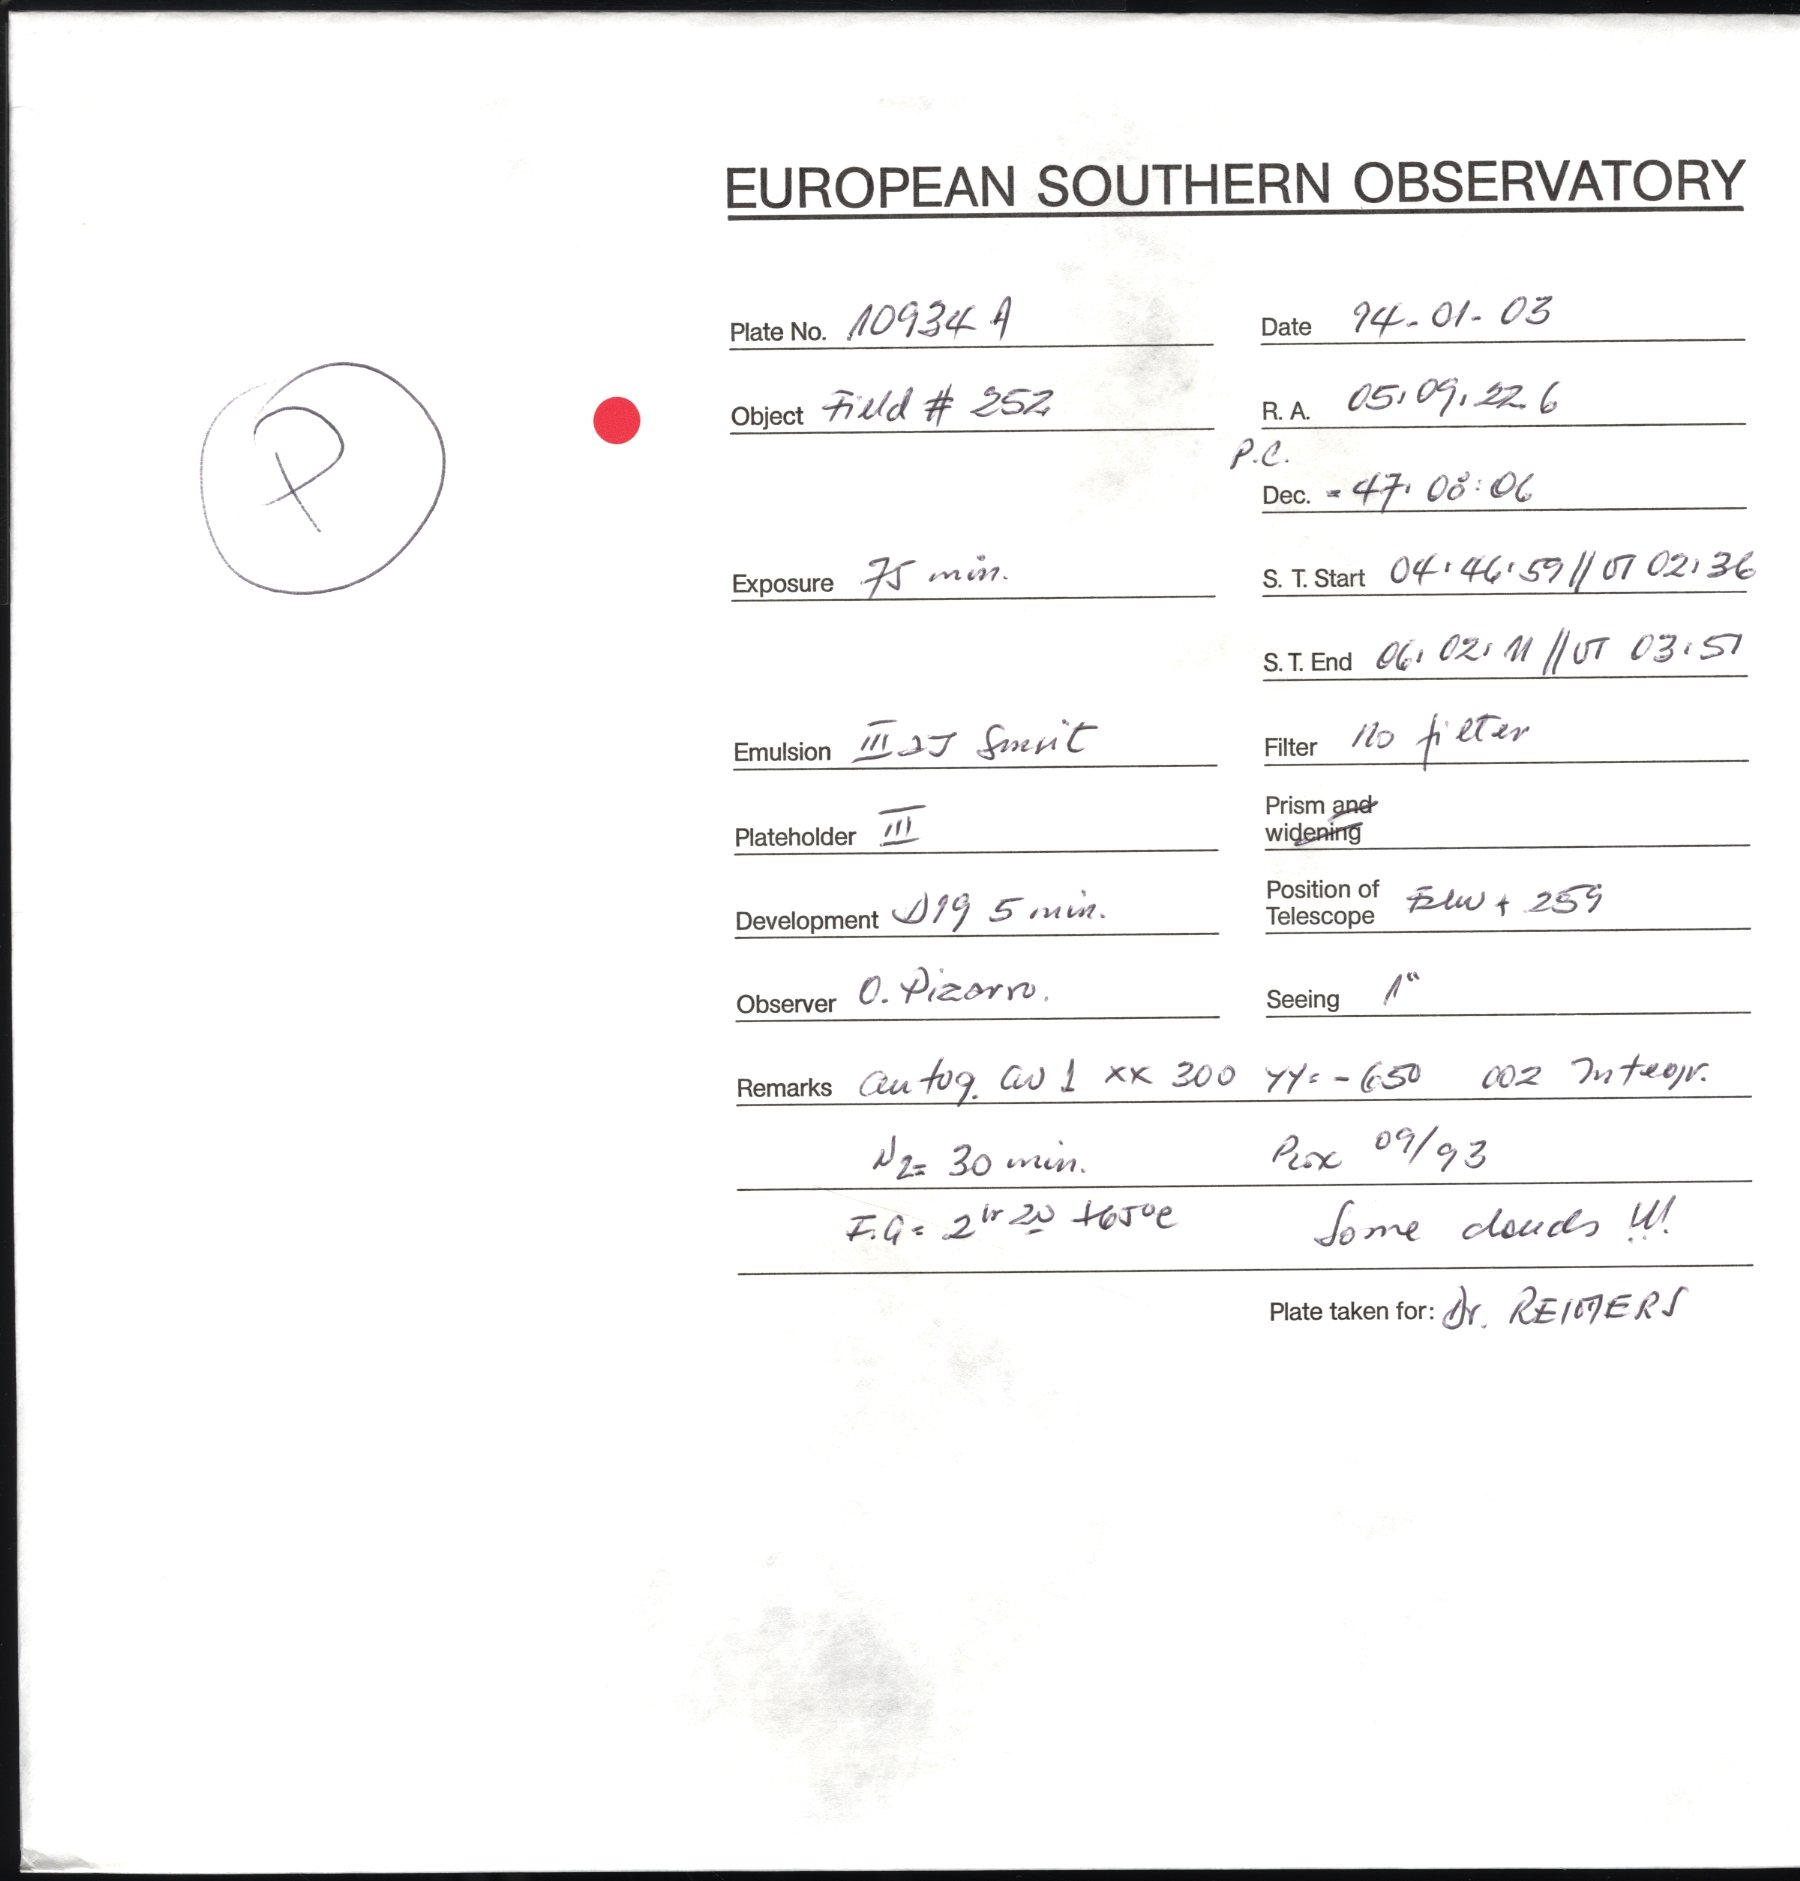 EUROPEAN SOUTHERN OBSERVATORY
Plate No. 10934 A
Date 94-01-03
Object Field # 252
R. A. 05:09:22.6
P
P.C.
Dec. -47:08:06
Exposure 75 min.
S. T. Start 04:46:59 // UT 02:36
S. T. End 06:02:11 // UT 03:51
Emulsion III aJ
Filter no filter
Plateholder III
Prism and
widening
Development D19 5 min.
Position of
Telescope + 259
Observer O. Pizarro.
Seeing 1"
Remarks autog. xx 300 yy=-650 002 Integr.
N2= 30 min. 09/93
F.G= 2hr 20 +65°C Some clouds !!!
Plate taken for: Dr. REIMERS